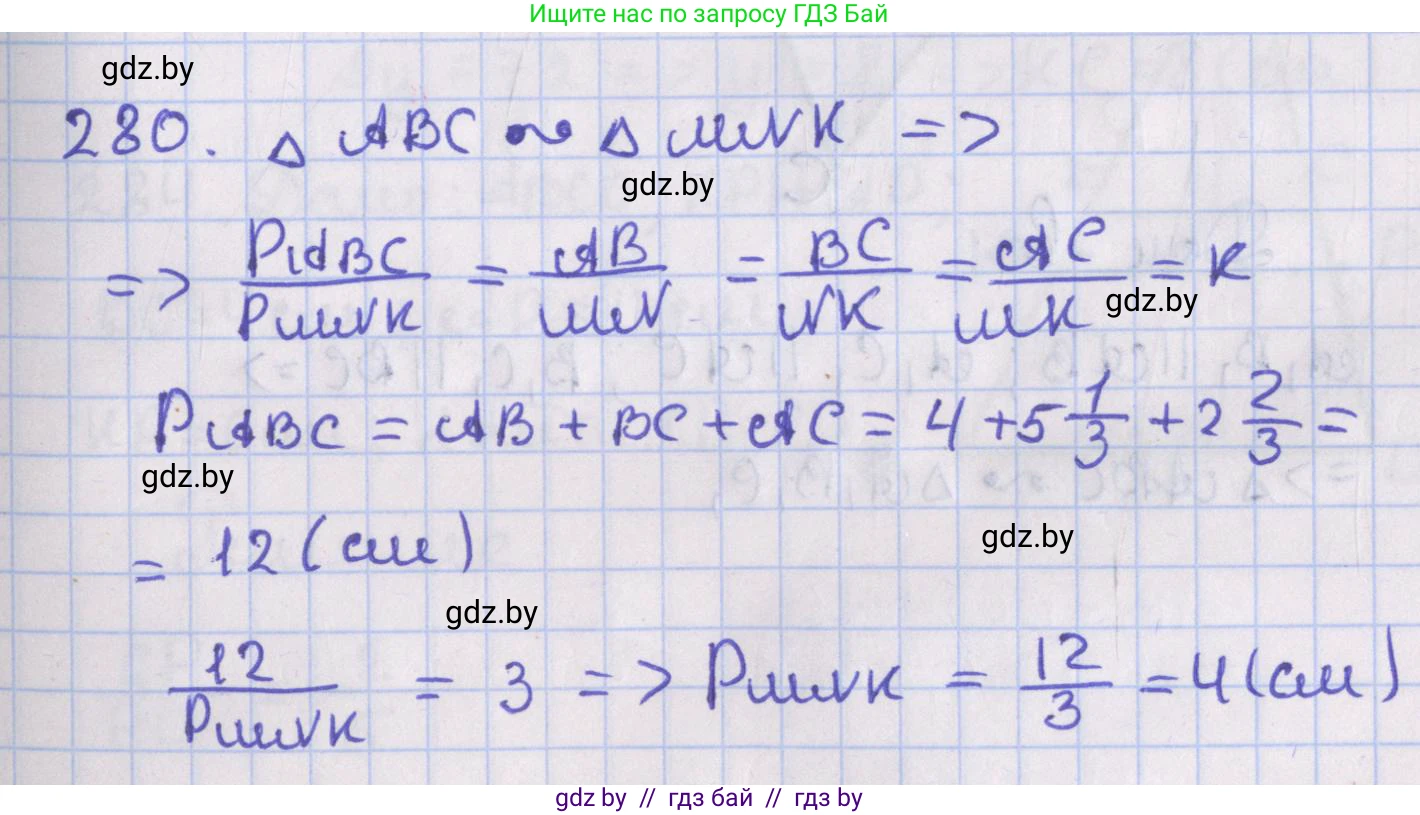 Ищите нас по запросу ГДЗ Бай
gdz.by
280. △ ABC ~ △ MNK =>
gdz.by
=> P_ABC/P_MNK = AB/MN = BC/NK = AC/MK = k
gdz.by
P_ABC = AB + BC + AC = 4 + 5 1/3 + 2 2/3 =
gdz.by
gdz.by
= 12 (см)
gdz.by
12/P_MNK = 3 => P_MNK = 12/3 = 4 (см)
gdz by // гдз бай // гдз by